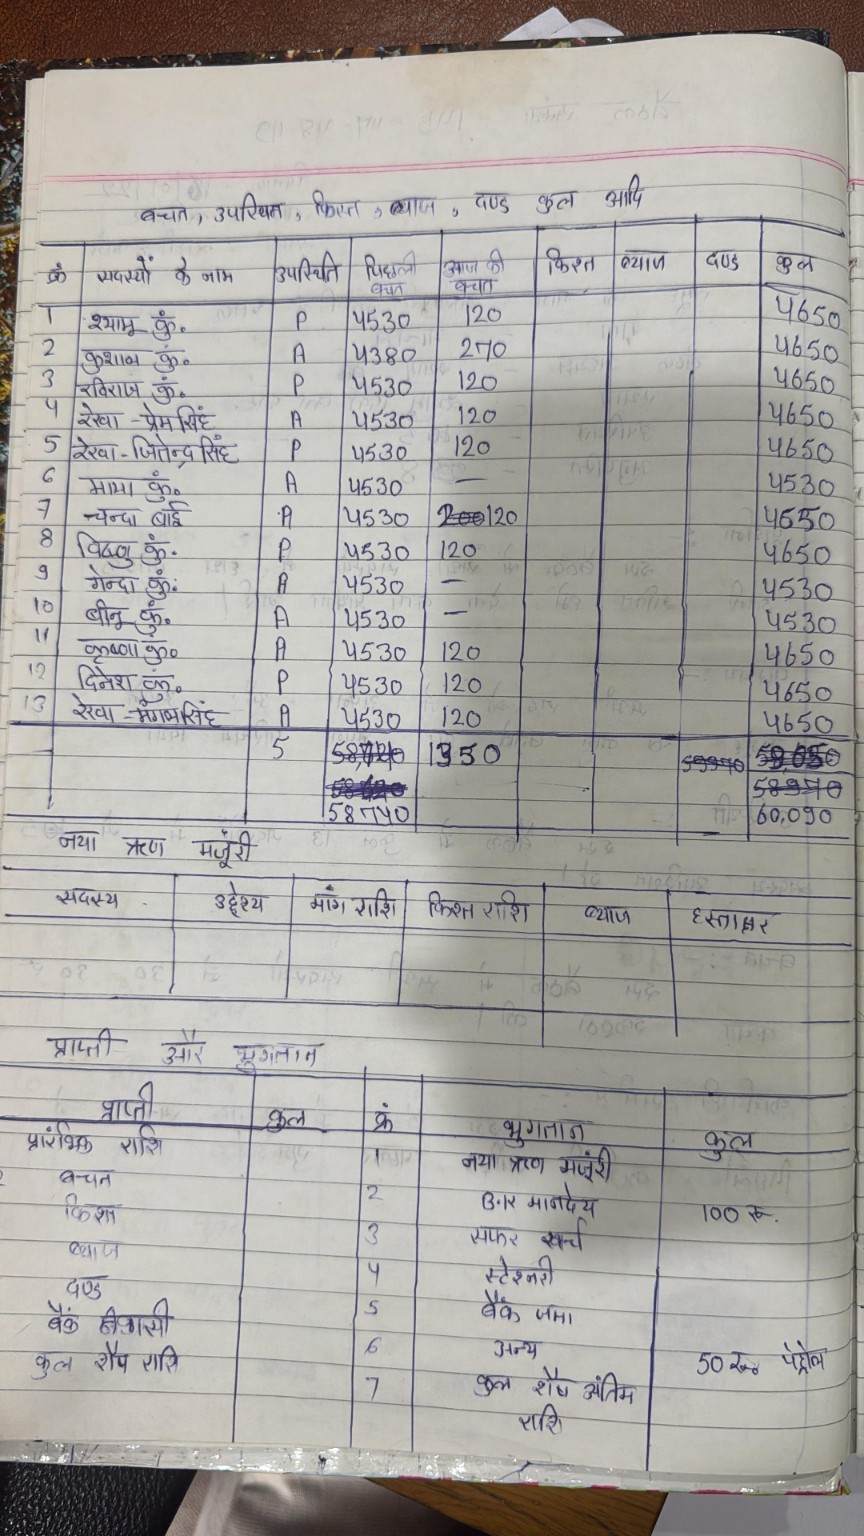 बचत, उपस्थित, किस्त, ब्याज, दण्ड कुल आदि
क्रं सदस्यों के नाम उपस्थिति पिछली बचत आज की बचत किश्त ब्याज दण्ड कुल
1 श्यामू कुं. P 4530 120 4650
2 कुशाल कुं. A 4380 270 4650
3 रविराज कुं. P 4530 120 4650
4 रेखा - प्रेमसिंह A 4530 120 4650
5 रेखा - जितेन्द्र सिंह P 4530 120 4650
6 मामा कुं. A 4530 — 4530
7 चन्दा बाई A 4530 120 4650
8 विष्णु कुं. P 4530 120 4650
9 गेन्दा कुं. A 4530 — 4530
10 बीनू कुं. A 4530 — 4530
11 कृष्णा कुं. A 4530 120 4650
12 दिनेश कुं. P 4530 120 4650
13 रेखा - मंगलसिंह A 4530 120 4650
5 1350
58740 60,090
नया ऋण मंजूरी
सदस्य उद्देश्य मांग राशि किश्त राशि ब्याज हस्ताक्षर
प्राप्ती और भुगतान
प्राप्ती कुल क्रं भुगतान कुल
प्रारंभिक राशि 1 नया ऋण मंजूरी
बचत 2 B.K मानदेय 100 रू.
किश्त 3 सफर खर्च
ब्याज 4 स्टेश्नरी
दण्ड 5 बैंक जमा
बैंक निकासी 6 अन्य 50 रू. पेट्रोल
कुल शेष राशि 7 कुल शेष अंतिम
राशि